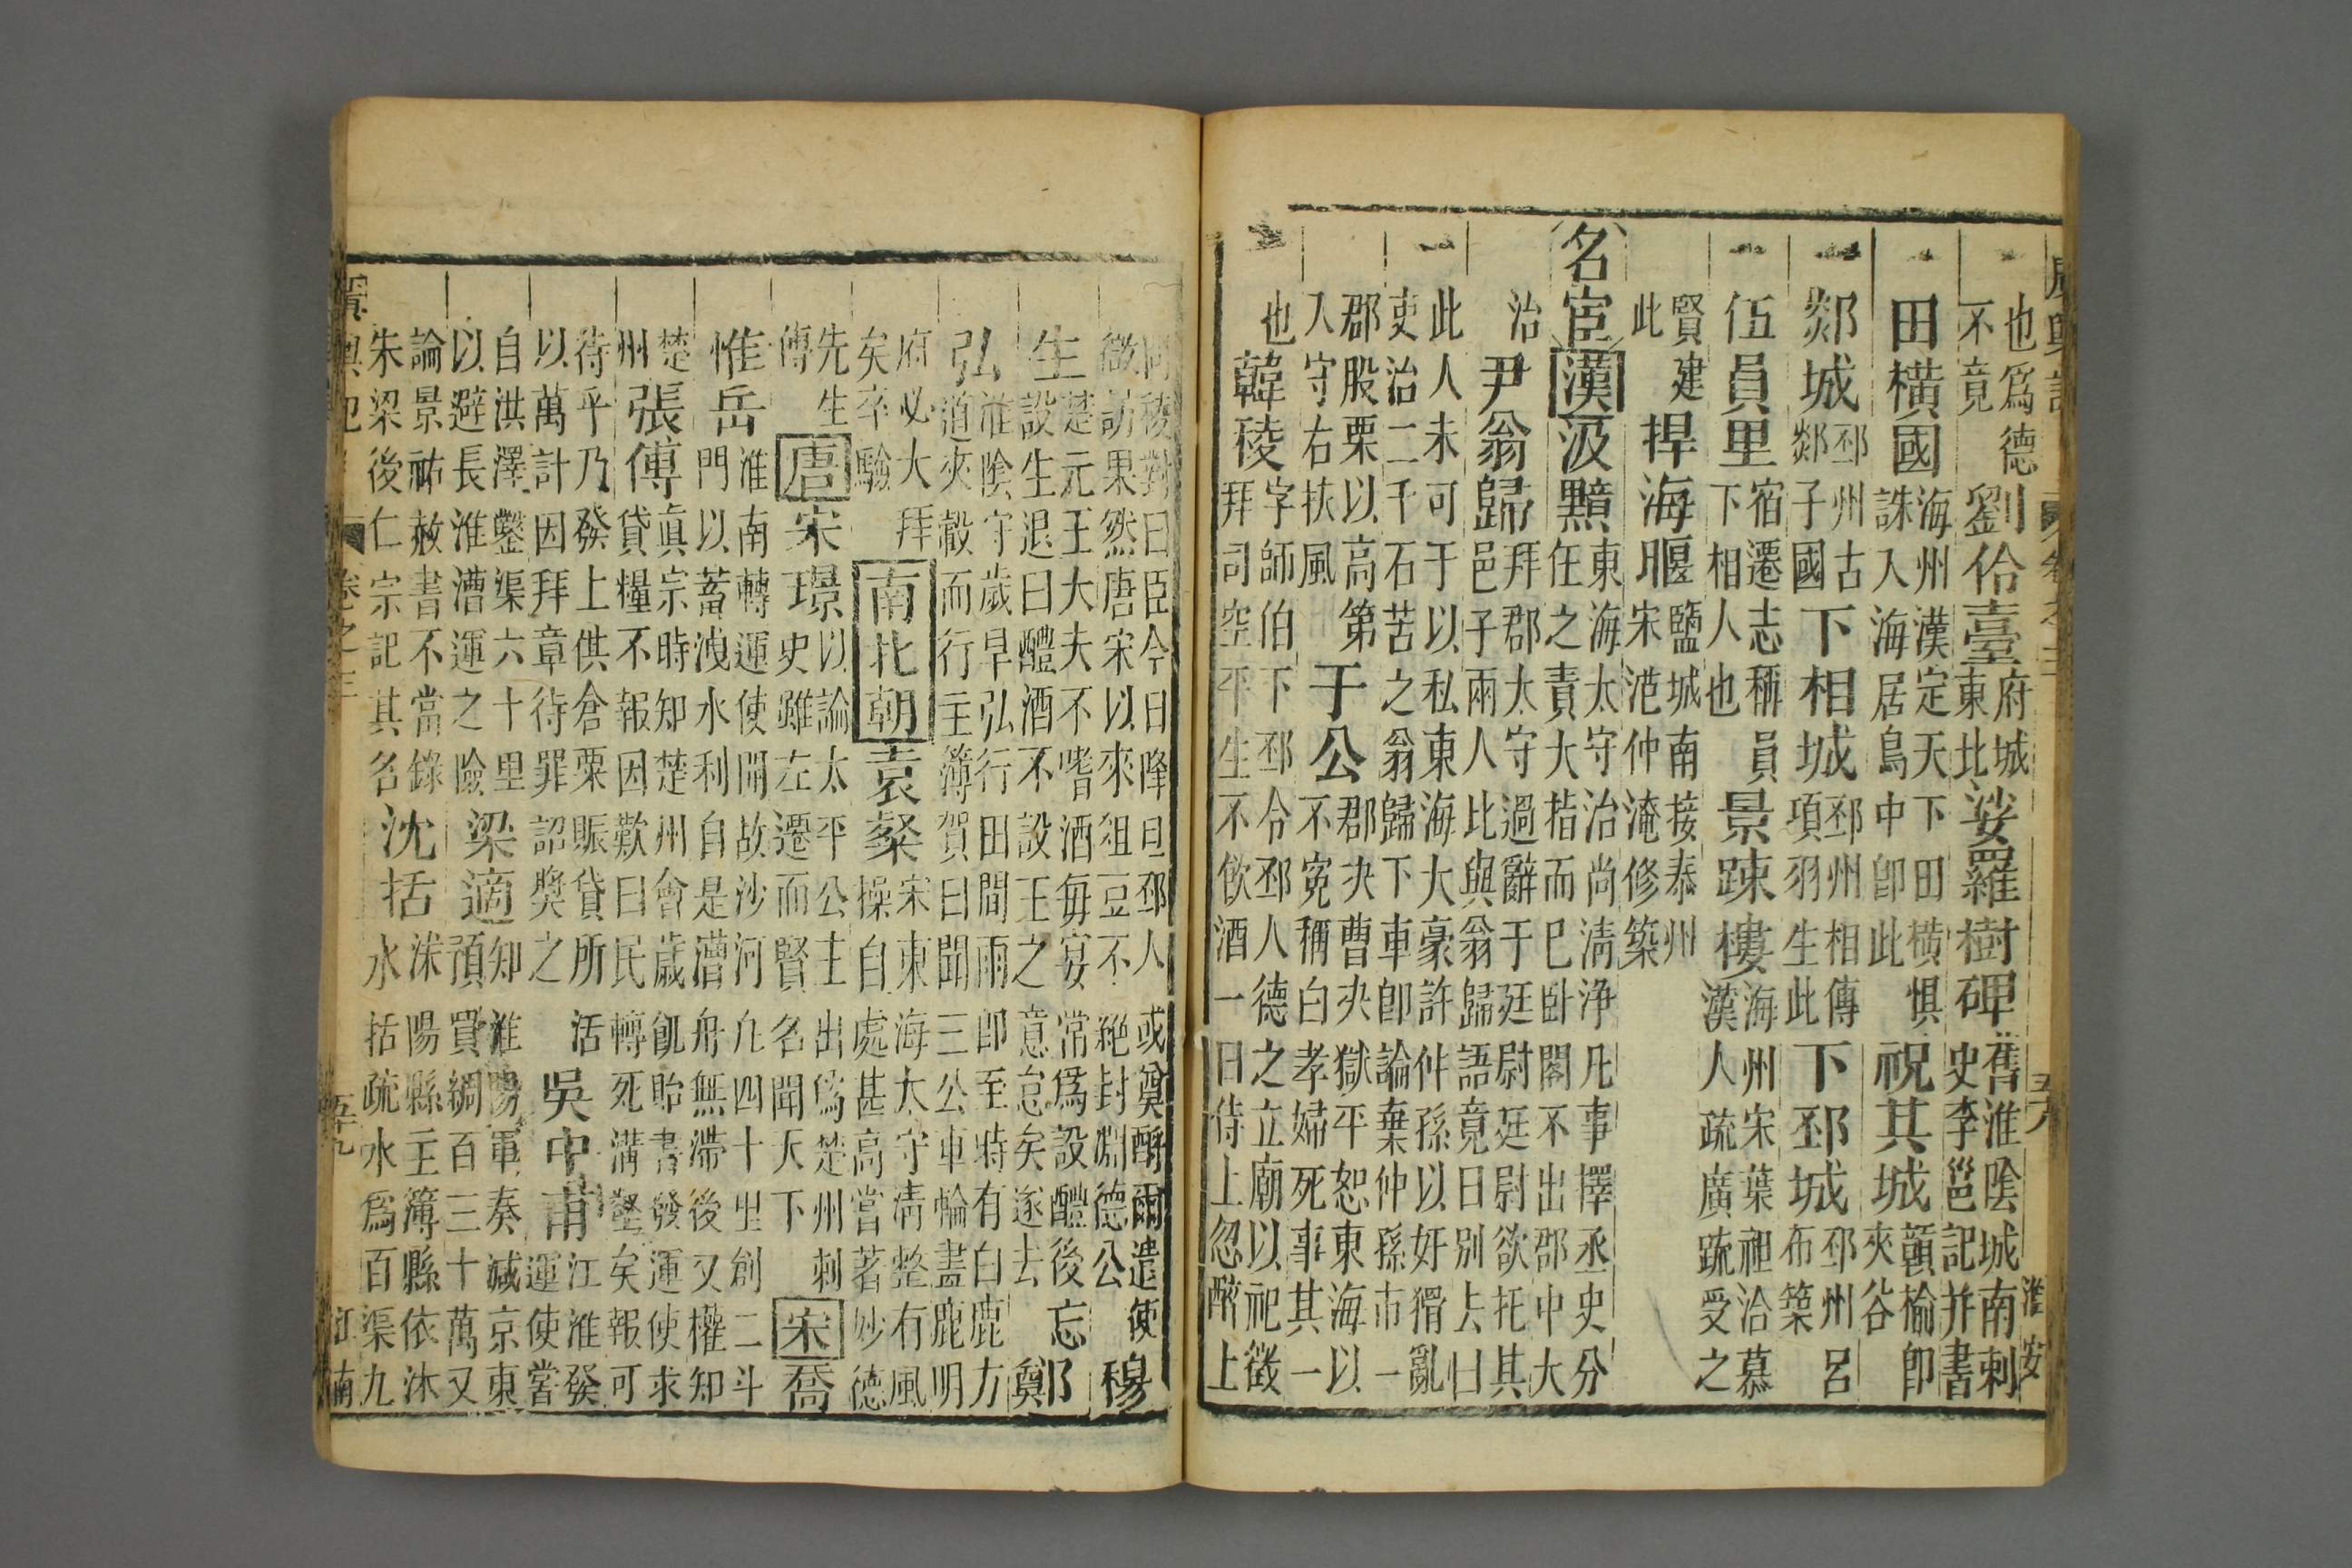 廣輿記 卷之三 五十八 淮安
也爲德
不竟
劉伶臺
府城
東北
娑羅樹碑
舊淮陰城南刺
史李邕記并書
田橫國
海州漢定天下田橫懼
誅入海居島中卽此
祝其城
贛榆卽
夾谷
郯城
邳州古
郯子國
下相城
邳州相傳
項羽生此
下邳城
邳州呂
布築
伍員里
宿遷志稱員
下相人也
景疎樓
海州宋葉祖洽慕
漢人疏廣疏受之
賢建
此
捍海堰
鹽城南接泰州
宋范仲淹修築
名宦 漢 汲黯
東海太守治尚淸浄凡事擇丞史分
任之責大指而已臥閣不出郡中大
治
尹翁歸
拜郡太守過辭于廷尉廷尉欲托其
邑子兩人比與翁歸語竟日別去曰
此人未可于以私東海大豪許仲孫以奸猾亂
吏治二千石苦之翁歸下車卽論棄仲孫市一
郡股栗以高第
入守右扶風
于公
郡決曹決獄平恕東海以
不寃稱白孝婦死事其一
也
韓稜
字師伯下邳令邳人德之立廟以祀徵
拜司空平生不飲酒一日侍上忽醉上
問稜對曰臣今日降旦邳人或奠酹爾遣使
徵訪果然唐宋以來俎豆不絶封淵德公
穆生
楚元王大夫不嗜酒每宴常爲設醴後忘
設生退曰醴酒不設王之意怠矣遂去
鄭弘
淮陰守歲旱弘行田間雨卽至時有白鹿方
道夾轂而行主簿賀曰聞三公車輪畫鹿明
府必大拜
矣卒驗
南北朝 袁粲
宋東海太守淸整有風
操自處甚高嘗著妙德
先生
傳
唐 宋璟
以論太平公主出爲楚州刺
史雖左遷而賢名聞天下
宋 喬惟岳
淮南轉運使開故沙河凡四十里創二斗
門以蓄洩水利自是漕舟無滯後又權知
楚
州
張傅
眞宗時知楚州會歲飢貽書發運使求
貸糧不報因歎曰民轉死溝壑矣報可
待乎乃發上供倉粟賑貸所活
以萬計因拜章待罪詔奬之
吳中甫
江淮發
運使嘗
自洪澤鑿渠六十里
以避長淮漕運之險
梁適
知淮陽軍奏减京東
預買紬百三十萬又
論景祐赦書不當錄
朱梁後仁宗記其名
沈括
沭陽縣主簿縣依沭
水括疏水爲百渠九
廣輿記 卷之三 五十九 江南